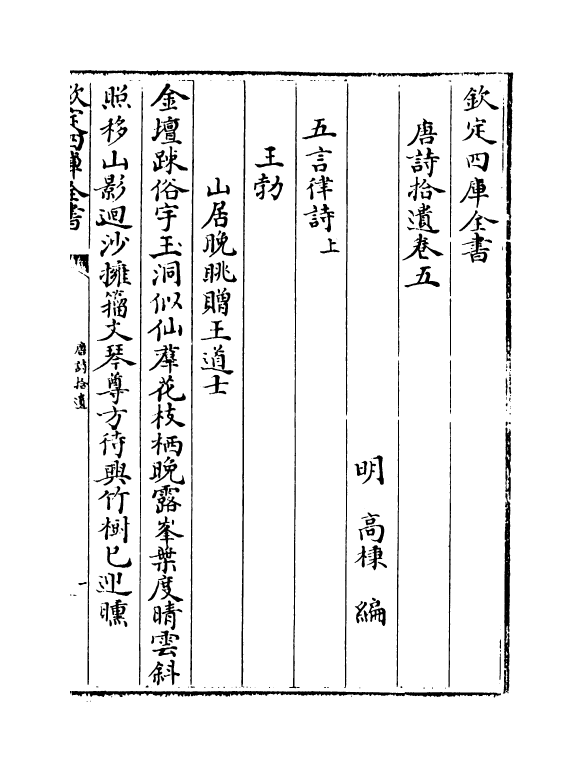 欽定四庫全書
唐詩拾遺卷五
明 高棅 編
五言律詩上
王勃
山居晚眺贈王道士
金壇踈俗宇玉洞似仙羣花枝栖晚露峯葉度晴雲斜
照移山影迴沙擁籀文琴尊方待興竹樹已迎曛
欽定四庫全書
唐詩拾遺
一